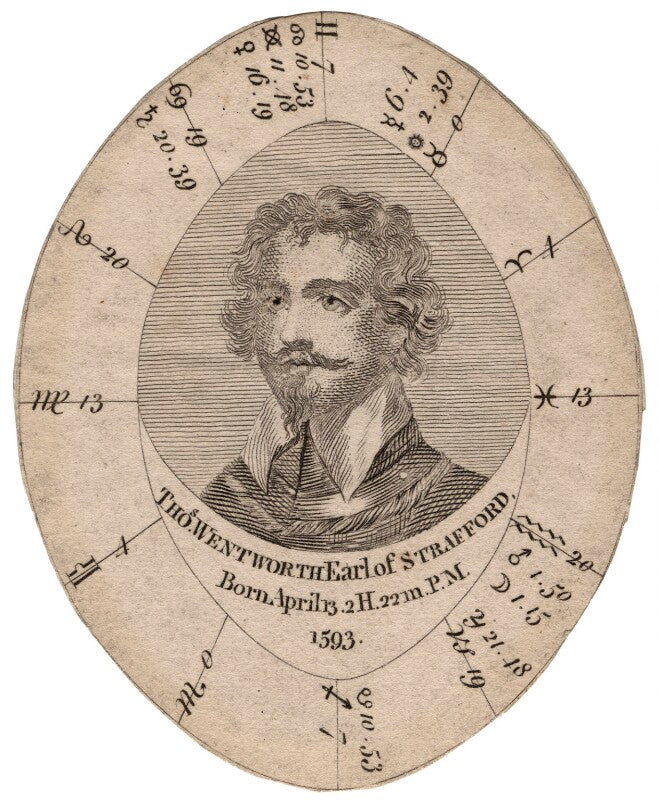 ♊ 7
☊ 10 . 53
⊗ 11 . 18
♀ 16 . 19
☿ 6 . 4
☉ 2 . 39
♉ 0
♋ 19
♃ 20 . 39
♈ 4
♌ 20
♍ 13
♓ 13
♒ 20
♂ 1 . 50
☽ 1 . 15
♄ 21 . 18
♑ 19
♎ 4
♏ 0
♐ 7
☋ 10 . 53
THOS. WENTWORTH Earl of STRAFFORD,
Born April 13 . 2 H. 22 m. P. M.
1593 .